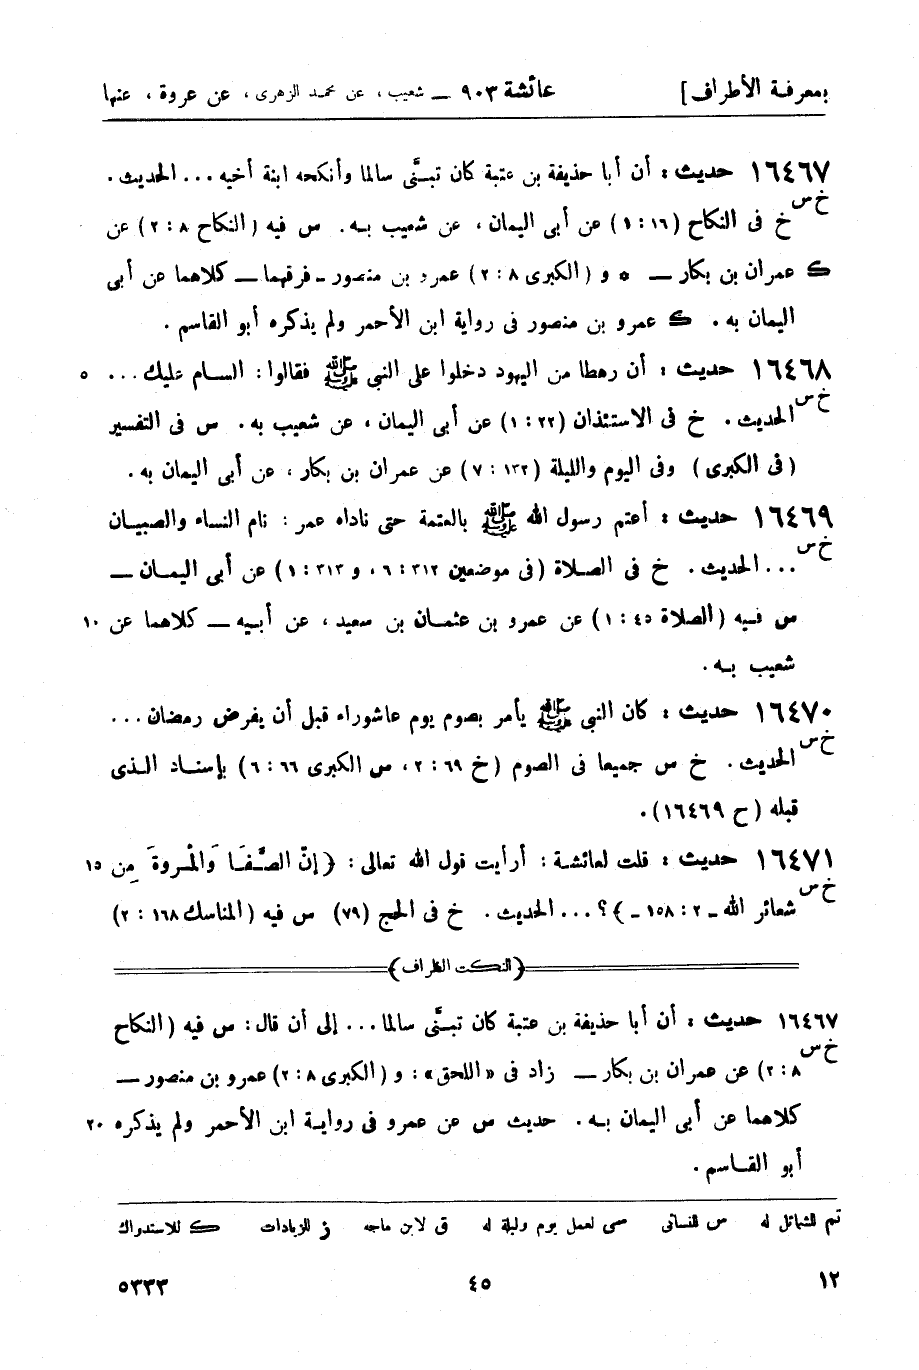 بمعرفة الأطراف] عائشة ٩٠٣ ــ شعيب، عن محمد الزهرى، عن عروة، عنها
١٦٤٦٧ حديث: أن أبا حذيفة بن عتبة كان تبنَّى سالما وأنكحه ابنة أخيه ... الحديث.
خ س
خ فى النكاح (١٦: ١) عن أبى اليمان، عن شعيب بـه. س فيه (النكاح ٨: ٢) عن
ك عمران بن بكار ــ * و (الكبرى ٨: ٢) عمرو بن منصور ـ فرقهما ــ كلاهما عن أبى
اليمان به. ك عمرو بن منصور فى رواية ابن الأحمر ولم يذكره أبو القاسم.
١٦٤٦٨ حديث: أن رهطا من اليهود دخلوا على النبى ﷺ فقالوا: السـام عليك ... ٥
خ س
الحديث. خ فى الاستئذان (٢٢: ١) عن أبى اليمان، عن شعيب به. س فى التفسير
(فى الكبرى) وفى اليوم والليلة (١٣٢: ٧) عن عمران بن بكار، عن أبى اليمان به.
١٦٤٦٩ حديث: أعتم رسول الله ﷺ بالعتمة حتى ناداه عمر: نام النساء والصبيان
خ س
... الحديث. خ فى الصلاة (فى موضعين ٣١٢: ٦، و ٣١٣: ١) عن أبى اليمـان ــ
س فيه (الصلاة ٤٥: ١) عن عمرو بن عثمـان بن سعيد، عن أبـيه ــ كلاهما عن ١٠
شعيب بـه.
١٦٤٧٠ حديث: كان النبى ﷺ يأمر بصوم يوم عاشوراء قبل أن يفرض رمضان ...
خ س
الحديث. خ س جميعا فى الصوم (خ ٦٩: ٢، س الكبرى ٦٦: ٦) بإسناد الـذى
قبله (ح ١٦٤٦٩).
١٦٤٧١ حديث: قلت لعائشة: أرأيت قول الله تعالى: ﴿إنّ الصَّـفَـا وَالْمَـروةَ مِن ١٥
خ س
شعائر الله ـ ٢: ١٥٨ ـ﴾؟ ... الحديث. خ فى الحج (٧٩) س فيه (المناسك ١٦٨: ٢)
﴿النكت الظراف﴾
١٦٤٦٧ حديث: أن أبا حذيفة بن عتبة كان تبنَّى سالما ... إلى أن قال: س فيه (النكاح
خ س
٨: ٢) عن عمران بن بكار ــ زاد فى «اللحق»: و (الكبرى ٨: ٢) عمرو بن منصور ــ
كلاهما عن أبى اليمان بـه. حديث س عن عمرو فى روايـة ابن الأحمر ولم يذكره ٢٠
أبو القـاسم.
تم للشمائل له س للنسائى سى لعمل يوم وليلة له ق لابن ماجه ز للزيادات ك للاستدراك
١٢ ٤٥ ٥٣٣٣